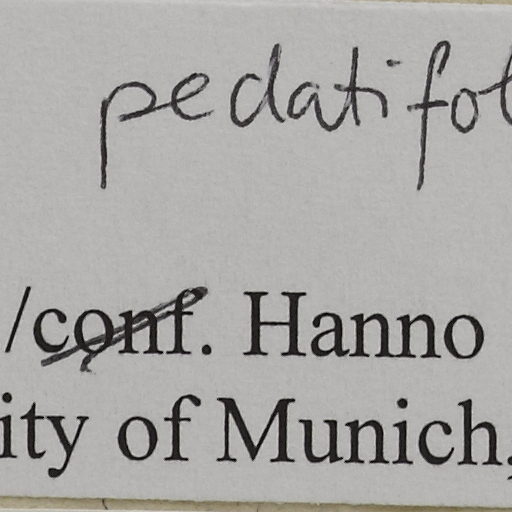 pedatifol
/conf. Hanno
ity of Munich,